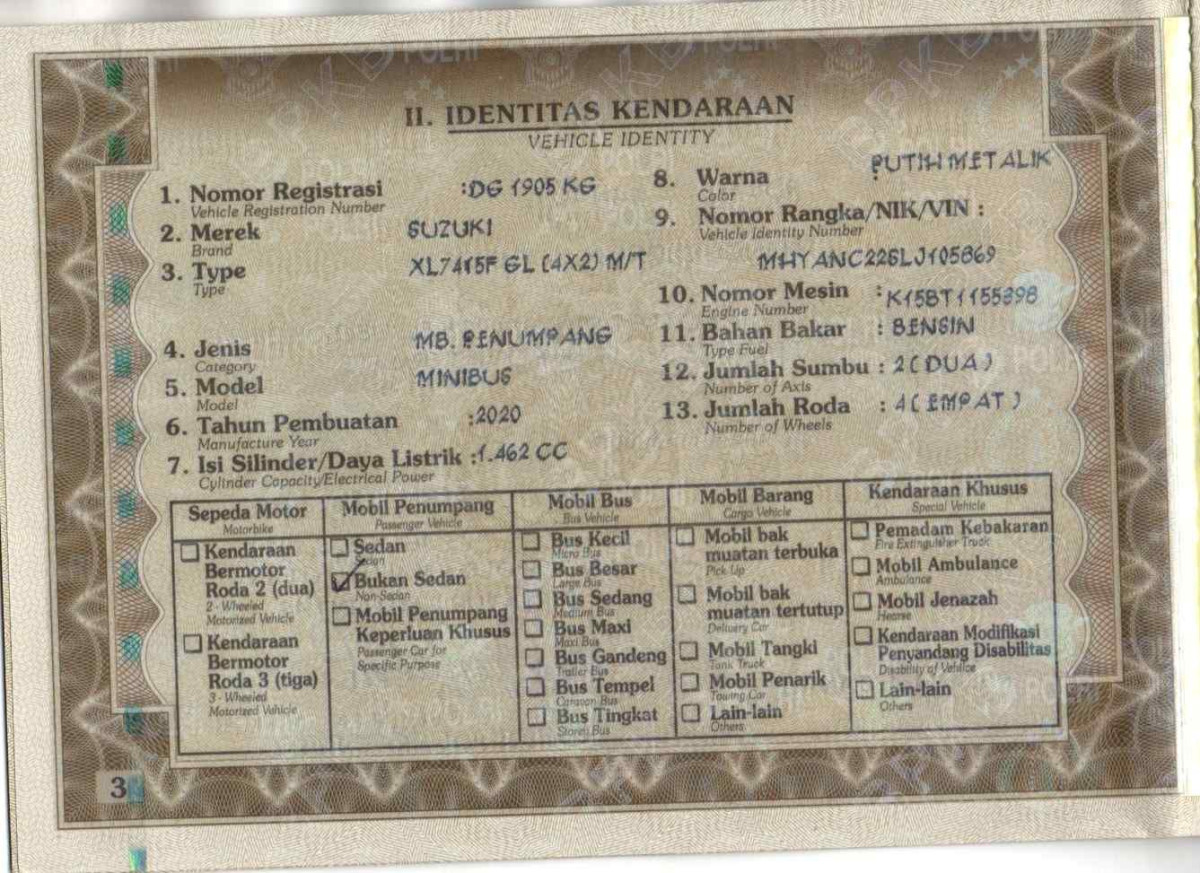 II. IDENTITAS KENDARAAN
VEHICLE IDENTITY
1. Nomor Registrasi :DG 1905 KG
Vehicle Registration Number
2. Merek SUZUKI
Brand
3. Type XL7415F GL (4X2) M/T
Type
4. Jenis MB. PENUMPANG
Category
5. Model MINIBUS
Model
6. Tahun Pembuatan :2020
Manufacture Year
7. Isi Silinder/Daya Listrik :1.462 CC
Cylinder Capacity/Electrical Power
8. Warna PUTIH METALIK
Color
9. Nomor Rangka/NIK/VIN :
Vehicle Identity Number
MHYANC22SLJ105869
10. Nomor Mesin : K15BT1155398
Engine Number
11. Bahan Bakar : BENSIN
Type Fuel
12. Jumlah Sumbu : 2 (DUA)
Number of Axis
13. Jumlah Roda : 4 (EMPAT)
Number of Wheels
Sepeda Motor
Motorbike
Kendaraan
Bermotor
Roda 2 (dua)
2 - Wheeled
Motorized Vehicle
Kendaraan
Bermotor
Roda 3 (tiga)
3 - Wheeled
Motorized Vehicle
Mobil Penumpang
Passenger Vehicle
Sedan
Sedan
Bukan Sedan
Non-Sedan
Mobil Penumpang
Keperluan Khusus
Passenger Car for
Specific Purpose
Mobil Bus
Bus Vehicle
Bus Kecil
Micro Bus
Bus Besar
Large Bus
Bus Sedang
Medium Bus
Bus Maxi
Maxi Bus
Bus Gandeng
Trailer Bus
Bus Tempel
Caravan Bus
Bus Tingkat
Storey Bus
Mobil Barang
Cargo Vehicle
Mobil bak
muatan terbuka
Pick Up
Mobil bak
muatan tertutup
Delivery Car
Mobil Tangki
Tank Truck
Mobil Penarik
Towing Car
Lain-lain
Others
Kendaraan Khusus
Special Vehicle
Pemadam Kebakaran
Fire Extinguisher Truck
Mobil Ambulance
Ambulance
Mobil Jenazah
Hearse
Kendaraan Modifikasi
Penyandang Disabilitas
Disability of Vehilce
Lain-lain
Others
3